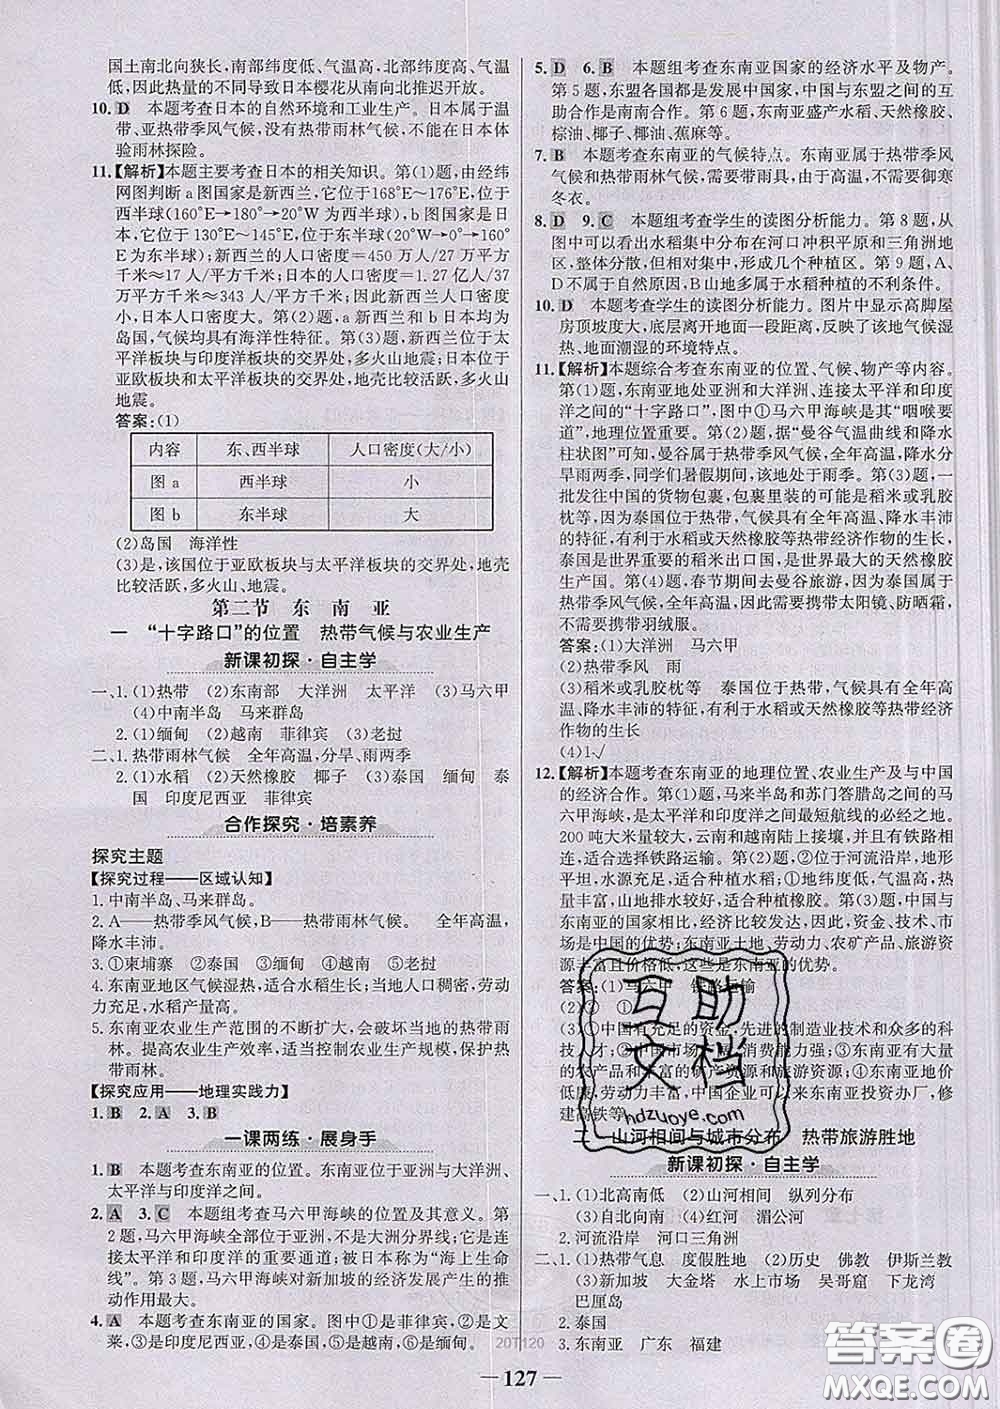 国土南北向狭长,南部纬度低、气温高,北部纬度高、气温
低,因此热量的不同导致日本樱花从南向北推迟开放。
10. D 本题考查日本的自然环境和工业生产。日本属于温
带、亚热带季风气候,没有热带雨林气候,不能在日本体
验雨林探险。
11.【解析】本题主要考查日本的相关知识。第(1)题,由经纬
网图判断a图国家是新西兰,它位于168°E~176°E,位于
西半球(160°E→180°→20°W为西半球),b图是日本,
它位于130°E~145°E,位于东半球(20°W→0°→160°
E为东半球);新西兰的人口密度=450万人/27万平方
千米≈17人/平方千米;日本的人口密度=1.27亿人/37
万平方千米≈343人/平方千米;因此新西兰人口密度
小,日本人口密度大。第(2)题,a新西兰和b日本均为
岛国,气候均具有海洋性特征。第(3)题,新西兰位于太
平洋板块与印度洋板块的交界处,多火山地震;日本位于
亚欧板块和太平洋板块的交界处,地壳比较活跃,多火山
地震。
答案:(1)
内容 东、西半球 人口密度(大/小)
图a 西半球 小
图b 东半球 大
(2)岛国 海洋性
(3)是,该国位于亚欧板块与太平洋板块的交界处,地壳
比较活跃,多火山、地震。
第二节 东南亚
一 “十字路口”的位置 热带气候与农业生产
新课初探·自主学
一、1.(1)热带 (2)东南部 大洋洲 太平洋 (3)马六甲
(4)中南半岛 马来群岛
2.(1)缅甸 (2)越南 菲律宾 (3)老挝
二、1.热带雨林气候 全年高温,分旱、雨两季
2.(1)水稻 (2)天然橡胶 椰子 (3)泰国 缅甸 泰
国 印度尼西亚 菲律宾
合作探究·培素养
探究主题
【探究过程——区域认知】
1.中南半岛、马来群岛。
2. A——热带季风气候,B——热带雨林气候。 全年高温,
降水丰沛。
3.①柬埔寨 ②泰国 ③缅甸 ④越南 ⑤老挝
4.东南亚地区气候湿热,适合水稻生长;当地人口稠密,劳动
力充足,水稻产量高。
5.东南亚农业生产范围的不断扩大,会破坏当地的热带雨
林。提高农业生产效率,适当控制农业生产规模,保护热
带雨林。
【探究应用——地理实践力】
1. B 2. A 3. B
一课两练·展身手
1. B 本题考查东南亚的位置。东南亚位于亚洲与大洋洲、
太平洋与印度洋之间。
2. A 3. C 本题组考查马六甲海峡的位置及其意义。第
2题,马六甲海峡全部位于亚洲,不是大洲分界线;它是连
接太平洋和印度洋的重要通道;被日本称为“海上生命
线”。第3题,马六甲海峡对新加坡的经济发展产生的推
动作用最大。
4. A 本题考查东南亚的国家。图中①是菲律宾,②是文
莱,③是印度尼西亚,④是泰国,⑤是越南,⑥是缅甸。
5. D 6. B 本题组考查东南亚国家的经济水平及物产。
第5题,东盟各国都是发展中国家,中国与东盟之间的互
助合作是南南合作。第6题,东南亚盛产水稻、天然橡胶、
棕油、椰子、椰油、蕉麻等。
7. B 本题考查东南亚的气候特点。东南亚属于热带季风
气候和热带雨林气候,需要带雨具,由于高温,不需要御寒
冬衣。
8. D 9. C 本题组考查学生的读图分析能力。第8题,从
图中可以看出水稻集中分布在河口冲积平原和三角洲地
区,整体分散,但相对集中,形成几个种植区。第9题,A、
D不属于自然原因,B山地多属于发展水稻的不利条件。
10. D 本题考查学生的读图分析能力。图片中显示高脚屋
房顶坡度大,底层离开地面一段距离,反映了该地气候湿
热、地面潮湿的环境特点。
11.【解析】本题综合考查东南亚的位置、气候、物产等内容。
第(1)题,东南亚地处亚洲和大洋洲、连接太平洋和印度
洋之间的“十字路口”,图中①马六甲海峡是其“咽喉要
道”,地理位置重要。第(2)题,据“曼谷气温曲线和降水
柱状图”可知,曼谷属于热带季风气候,全年高温,降水分
旱雨两季,同学们暑假期间,该地处于雨季。第(3)题,一
批发往中国的货物包裹,包裹里装的可能是稻米或乳胶
枕等,因为泰国位于热带,气候具有全年高温、降水丰沛
的特征,有利于水稻或天然橡胶等热带经济作物的生长,
泰国是世界重要的稻米出口国,是世界最大的天然橡胶
生产国。第(4)题,春节期间去曼谷旅游,因泰国属于热
带季风气候,全年高温,需要携带太阳镜、防晒霜,不需要
携带羽绒服。
答案:(1)大洋洲 马六甲
(2)热带季风 雨
(3)稻米或乳胶枕等 泰国位于热带,气候具有全年高
温、降水丰沛的特征,有利于水稻或天然橡胶等热带经济
作物的生长
(4)1√
12.【解析】本题考查东南亚的地理位置、农业生产及与中国
的经济合作。第(1)题,马来半岛和苏门答腊岛之间的马
六甲海峡,是太平洋和印度洋之间最短航线的必经之地。
200吨大米量较大,云南和越南陆上接壤,并且有铁路相
连,适合选择铁路运输。第(2)题,②位于河流沿岸,地形
平坦,水源充足,适合种植水稻;①气温较高,光照充足,
热量丰富,山地排水较好,适合种植橡胶。第(3)题,中国与
东南亚的国家相比,经济比较发达,因此,资金、技术、市
场是中国的优势;东南亚土地、劳动力、农矿产品、旅游资
源丰富且价格低,这些是东南亚的优势。
答案:(1)马六甲 铁路运输
(2)② ①
(3)①中国有充足的资金,先进的制造业技术和众多的科
技人才;②中国市场广,消费能力强;③东南亚有大量
的农业产品和丰富的矿产资源和旅游资源;④东南亚土
地、劳动力丰富,价格低,适合到东南亚投资办厂,修
建高铁等。
二 山河相间与城市分布 热带旅游胜地
新课初探·自主学
一、1.(1)北高南低 (2)山河相间 纵列分布
(3)自北向南 (4)红河 湄公河
2.河流沿岸 河口三角洲
二、1.(1)热带气息 度假胜地 (2)历史 佛教 伊斯兰教
(3)新加坡 大金塔 水上市场 吴哥窟 下龙湾
巴厘岛
2.泰国
3.东南亚 广东 福建
互助
文档
hdzuoye.com
20T120
127
答案圈
MXQE.COM